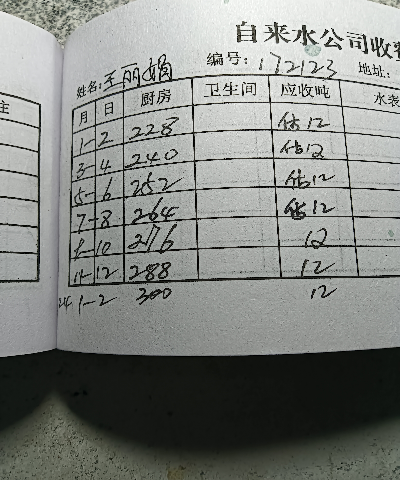 自来水公司收
姓名:王丽娟 编号:172123 地址:
月 日 厨房 卫生间 应收吨 水表
1-2 228 估12
3-4 240 估12
5-6 252 估12
7-8 264 估12
9-10 276 12
11-12 288 12
1-2 300 12